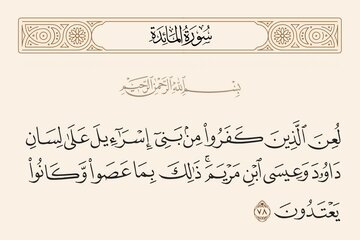 سُورَةُ المَائِدَة
بِسْمِ اللَّهِ الرَّحْمَنِ الرَّحِيمِ
لُعِنَ الَّذِينَ كَفَرُوا۟ مِنۢ بَنِىٓ إِسْرَٰٓءِيلَ عَلَىٰ لِسَانِ
دَاوُۥدَ وَعِيسَى ٱبْنِ مَرْيَمَ ۚ ذَٰلِكَ بِمَا عَصَوا۟ وَّكَانُوا۟
يَعْتَدُونَ ٧٨